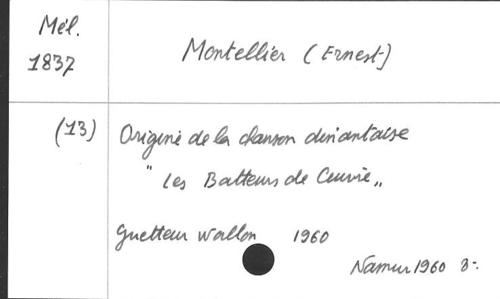 Mél.
1837
Montellier (Ernest)
(13)
Origine de la chanson dinantaise
"Les Batteurs de Cuivre"
Guetteur Wallon 1960
Namur 1960 8-.